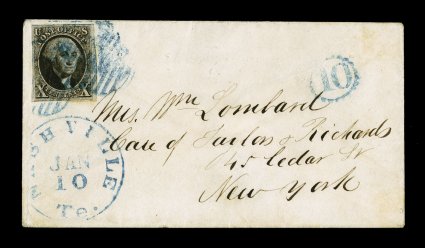 U S
POST OFFICE
X X
10
Mrs. Wm Lombard
Care of Taylor & Richards
45 Cedar St
New York
NASHVILLE
JAN
10
Te.